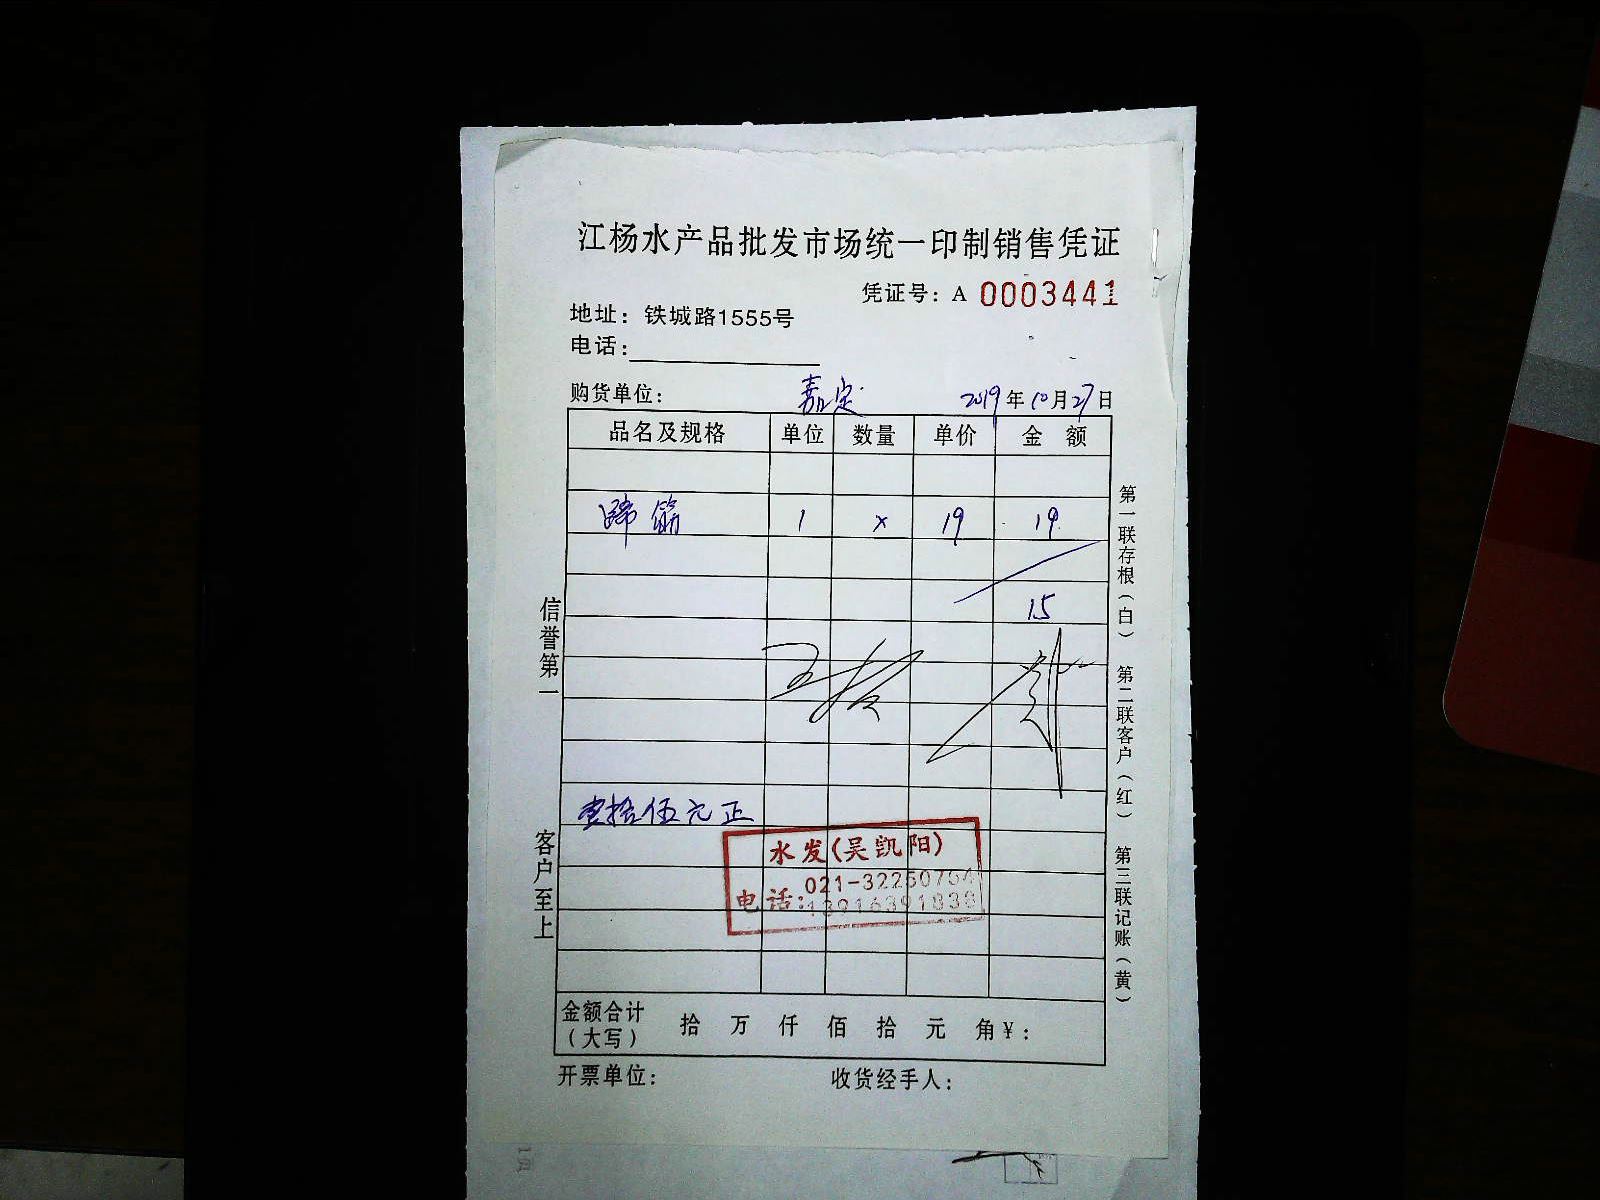 江杨水产品批发市场统一印制销售凭证
凭证号：A 0003441
地址：铁城路1555号
电话：
购货单位： 嘉定 2019年10月27日
品名及规格 单位 数量 单价 金 额
蹄筋 1 x 19 19
15
壹拾伍元正
水发(吴凯阳)
电话：021-32250754
13916391838
金额合计（大写） 拾 万 仟 佰 拾 元 角￥：
开票单位： 收货经手人：
信誉第一
客户至上
第一联存根（白）
第二联客户（红）
第三联记账（黄）